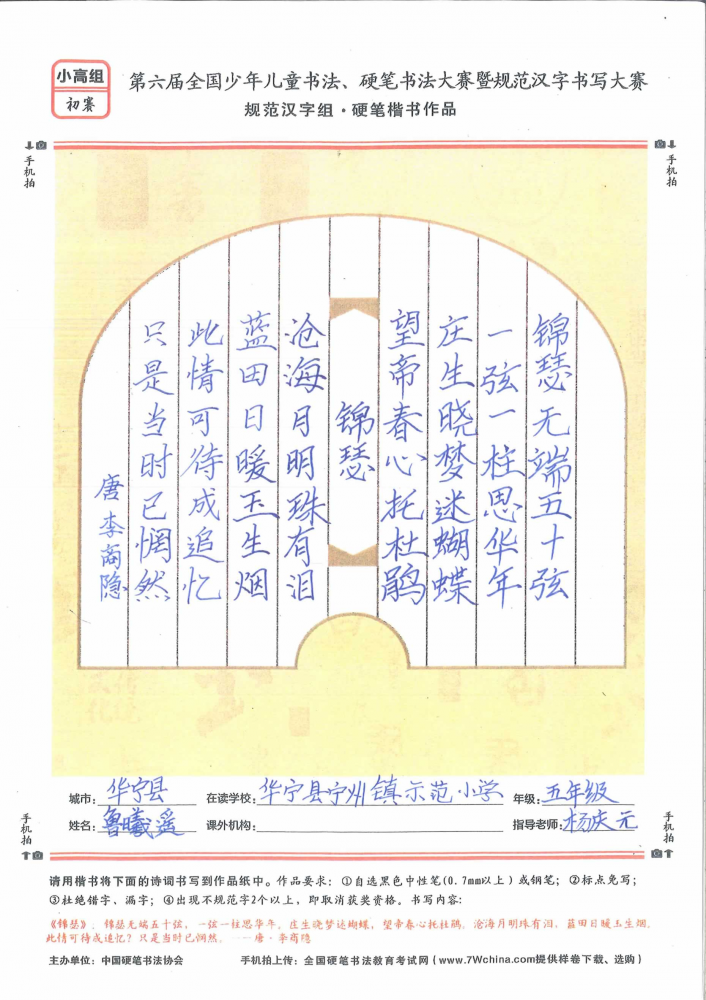 小高组
初赛
第六届全国少年儿童书法、硬笔书法大赛暨规范汉字书写大赛
规范汉字组·硬笔楷书作品
手机拍
手机拍
锦瑟无端五十弦
一弦一柱思华年
庄生晓梦迷蝴蝶
望帝春心托杜鹃
锦瑟
沧海月明珠有泪
蓝田日暖玉生烟
此情可待成追忆
只是当时已惘然
唐 李商隐
城市：华宁县 在读学校：华宁县宁州镇示范小学 年级：五年级
姓名：鲁曦遥 课外机构： 指导老师：杨庆元
手机拍
手机拍
请用楷书将下面的诗词书写到作品纸中。作品要求：①自选黑色中性笔(0.7mm以上)或钢笔；②标点免写；
③杜绝错字、漏字；④出现不规范字2个以上，即取消获奖资格。书写内容：
《锦瑟》：锦瑟无端五十弦，一弦一柱思华年。庄生晓梦迷蝴蝶，望帝春心托杜鹃。沧海月明珠有泪，蓝田日暖玉生烟。
此情可待成追忆？只是当时已惘然。——唐·李商隐
主办单位：中国硬笔书法协会 手机拍上传：全国硬笔书法教育考试网（www.7Wchina.com提供样卷下载、选购）